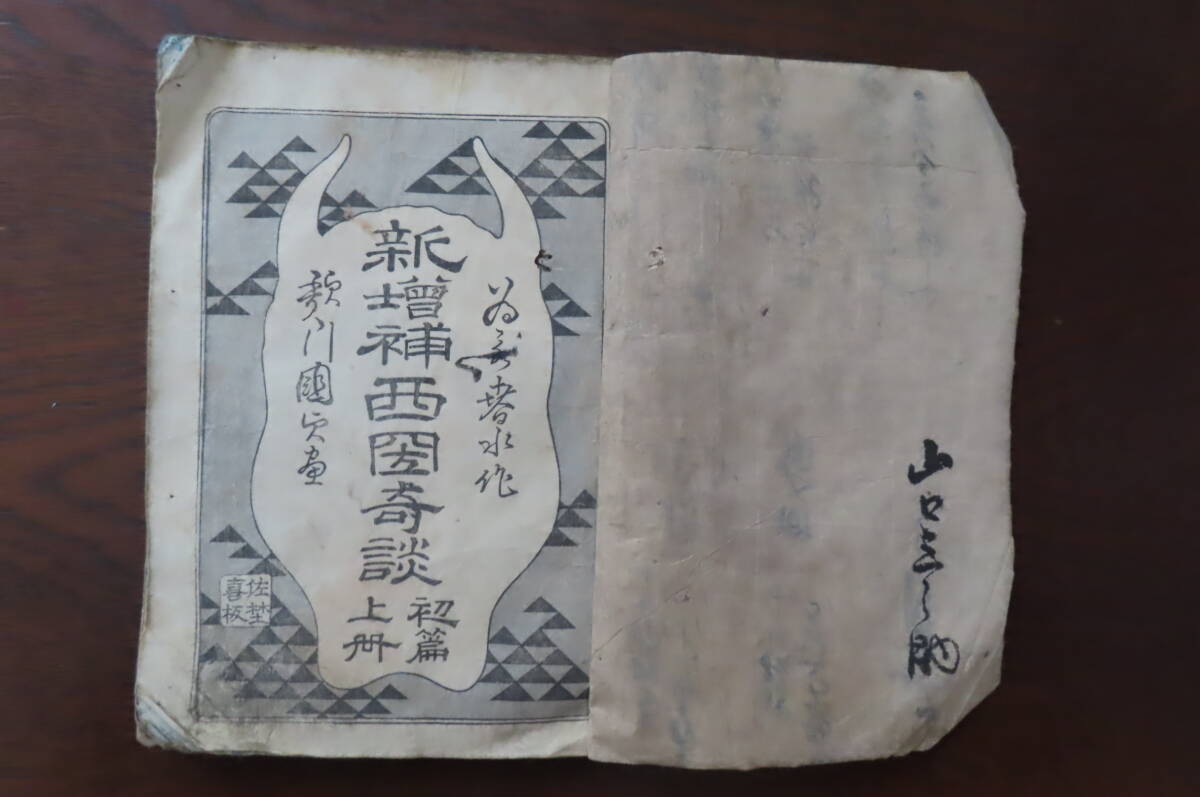 山口
為永春水作
新增補西圀奇談
初篇
上册
歌川國貞画
佐埜
喜板